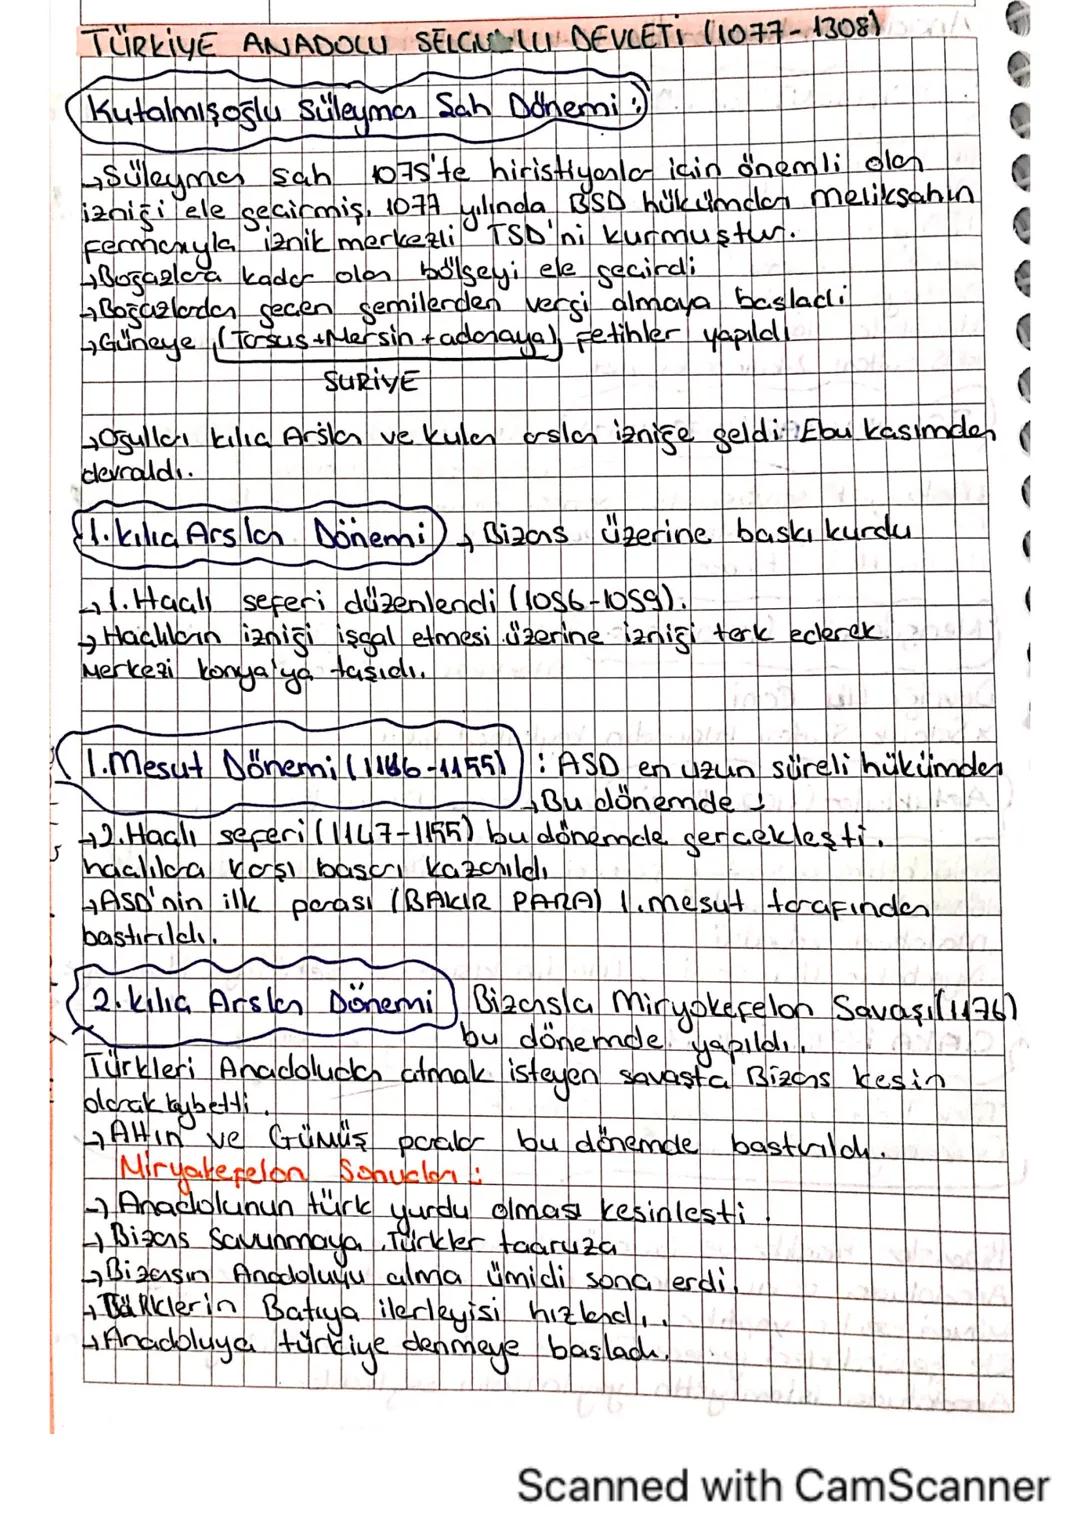 TÜRKİYE ANADOLU SELCUKLU DEVLETİ (1077-1308)
Kutalmışoğlu Süleyman Şah Dönemi:
→Süleyman şah 1075'te hiristiyanlar için önemli olan
izniği ele geçirmiş, 1077 yılında BSD hükümdarı melikşahın
fermanıyla iznik merkezli TSD'ni kurmuştur.
→Boğazlara kadar olan bölgeyi ele geçirdi
→Boğazlardan geçen gemilerden vergi almaya başladı
→Güneye (Tarsus+Mersin+adanaya) fetihler yapıldı
SURİYE
→Oğulları kılıç Arslan ve kulan arslan izniğe geldi Ebu kasımdan
devraldı.
1. kılıç Arslan Dönemi → Bizans üzerine baskı kurdu
→1. Haçlı seferi düzenlendi (1096-1099).
→Haçlıların izniği işgal etmesi üzerine izniği terk ederek
Merkezi konya'ya taşıdı.
1. Mesut Dönemi (1116-1155) : ASD en uzun süreli hükümdarı
→Bu dönemde ↓
→2. Haçlı seferi (1147-1155) bu dönemde gerçekleşti.
haçlılara karşı başarı kazanıldı
→ASD'nin ilk parası (BAKIR PARA) 1. mesut tarafından
bastırıldı.
2. kılıç Arslan Dönemi Bizansla Miryokefelon Savaşı (1176)
bu dönemde yapıldı.
Türkleri Anadoludan atmak isteyen savaşta Bizans kesin
olarak kybetti.
→Altın ve Gümüş paralar bu dönemde bastırıldı.
Miryakefelon Sonuçları:
→Anadolunun türk yurdu olması kesinleşti.
→Bizans Savunmaya, Türkler taaruza
→Bizansın Anadoluyu alma ümidi sona erdi.
→Türklerin Batıya ilerleyişi hızlandı.
→Anadoluya türkiye denmeye başladı.
Scanned with CamScanner